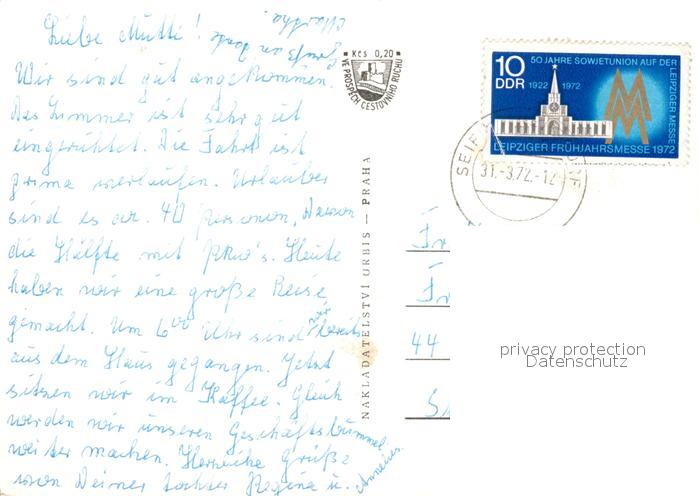 Liebe Mutti!
Wir sind gut angekommen.
Das Zimmer ist sehr gut
eingerichtet. Die Fahrt ist
prima verlaufen. Urlauber
sind es ca. 40 Personen, davon
die Hälfte mit PKW's. Heute
haben wir eine große Reise
gemacht. Um 6 00 Uhr sind wir bereits
aus dem Haus gegangen. Jetzt
sitzen wir im Kaffee. Gleich
werden wir unseren Geschäftsbummel
weiter machen. Herzliche Grüße
von Deiner Tochter Regina u.
Martha.
Kčs 0,20
VE PROSPĚCH CESTOVNÍHO RUCHU
NAKLADATELSTVÍ ORBIS — PRAHA
50 JAHRE SOWJETUNION AUF DER LEIPZIGER MESSE
10
DDR
1922 1972
LEIPZIGER FRÜHJAHRSMESSE 1972
31.-3.72.-12
44
privacy protection
Datenschutz